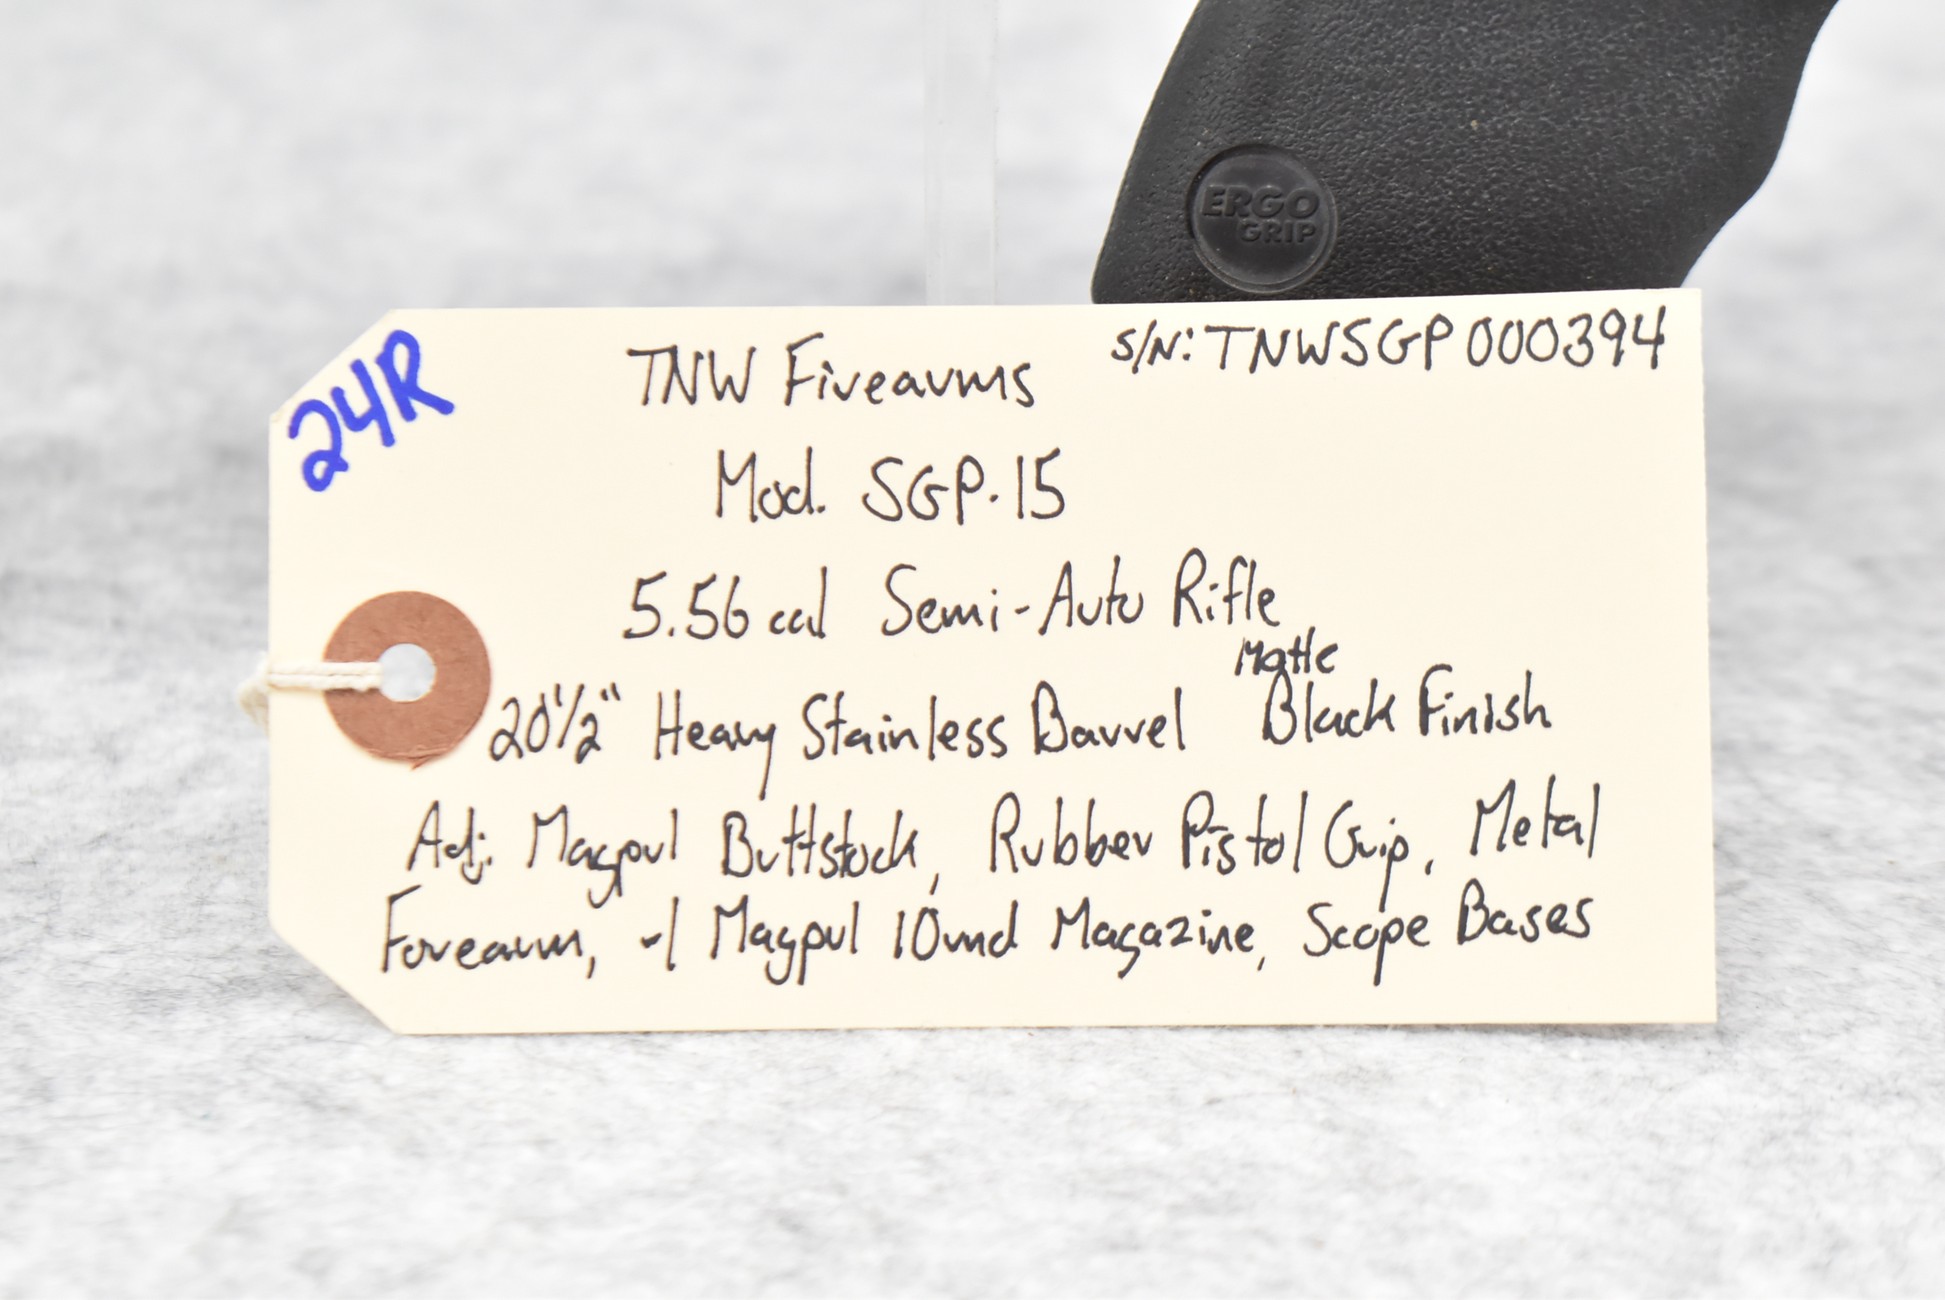 ERGO
GRIP
24R
S/N: TNWSGP000394
TNW Firearms
Mod. SGP-15
5.56 cal Semi-Auto Rifle
20 1/2" Heavy Stainless Barrel Matte Black Finish
Adj. Magpul Buttstock, Rubber Pistol Grip, Metal
Forearm, -1 Magpul 10rnd Magazine, Scope Bases